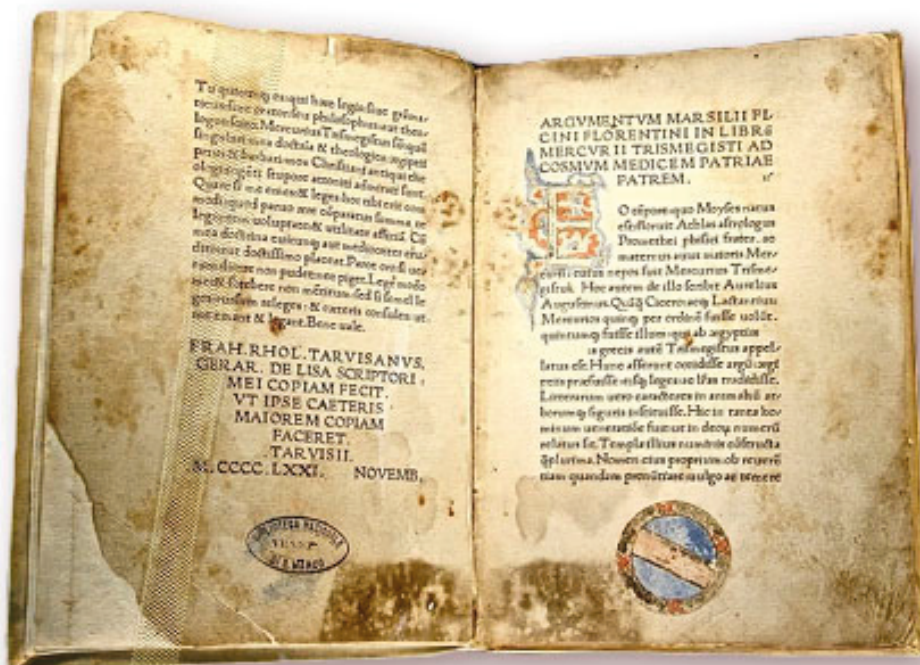 Tu quicunq es qui hæc legis siue grāma-
ticus siue orator siue philosophus aut theo-
logus scito. Mercurius Trismegistus
singulari mea doctrina & theologica. ægyptii
prius & barbari mox Christiani antiqui the
ologi ingēti stupore attoniti admirati sunt.
Quare si me emes & leges hoc tibi erit com
modi: quod paruo ære cōparatus summa te
legentem uoluptate & utilitate afficiā. Cū
mea doctrina cuicunq aut mediocriter eru
dito aut doctissimo placeat. Parce
non pudet nec piget. Lege modo
me & fatebere non mētitum sed si semel le
ges rursum releges: & cæteris consules: ut
me emant & legant. Bene uale.
FRAN. RHOL. TARVISANVS.
GERAR. DE LISA SCRIPTORI.
MEI COPIAM FECIT.
VT IPSE CAETERIS
MAIOREM COPIAM
FACERET.
.TARVISII.
M. CCCC. LXXI. NOVEMB.
BIBLIOTECA NAZIONALE
DI S. MARCO
ARGVMENTVM MARSILII FI-
CINI FLORENTINI IN LIBRŌ
MERCVRII TRISMEGISTI AD
COSMVM MEDICEM PATRIAE
PATREM.
EO tēpore quo Moyses natus
est floruit Athlas astrologus
Promethei phisici frater. ac
maternus auus maioris Mer-
curii: cuius nepos fuit Mercurius Trisme-
gistus. Hoc autem de illo scribit Aurelius
Augustinus. Quāq Cicero atq Lactantius
Mercurios quinq per ordinē fuisse uolūt.
quintumq fuisse illum qui ab ægyptiis
a græcis autē Trismegistus appel-
latus est. Hunc asserunt occidisse argū: ægi
ptiis præfuisse: eisq leges ac lr̄as tradidisse.
Litterarum uero caracteres in animaliū ar-
borumq figuris instituisse. Hic in tanta ho-
minum ueneratiōe fuit: ut in deorū numerū
relatus sit. Templa illius numinis cōstructa
q̄plurima. Nomen eius proprium ob reuerē
tiam quandam pronūtiare uulgo ac temere